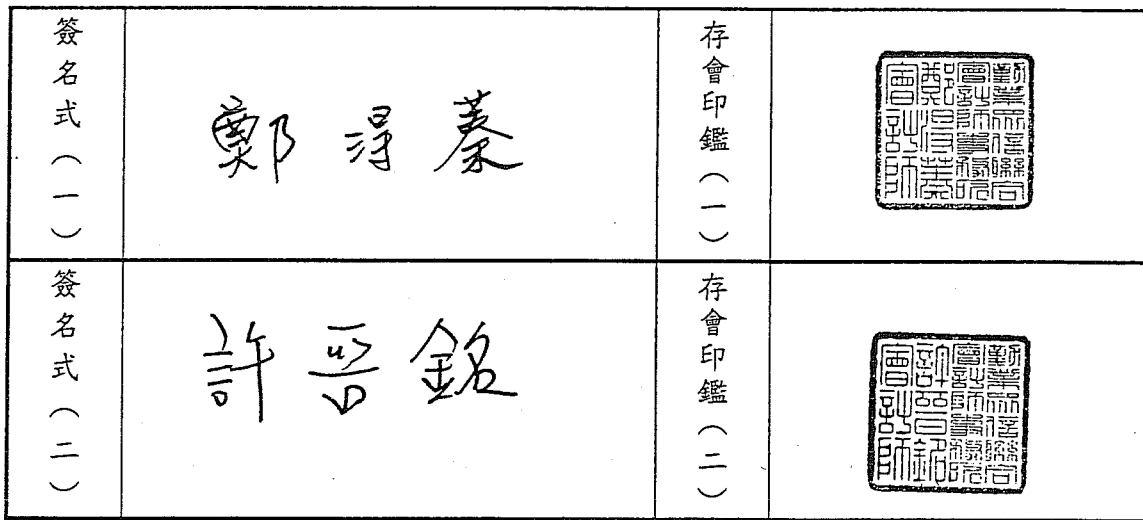 簽名式（一）
鄭得蓁
存會印鑑（一）
勤業眾信聯合
會計師事務所
鄭得蓁
會計師
簽名式（二）
許晉銘
存會印鑑（二）
勤業眾信聯合
會計師事務所
許晉銘
會計師